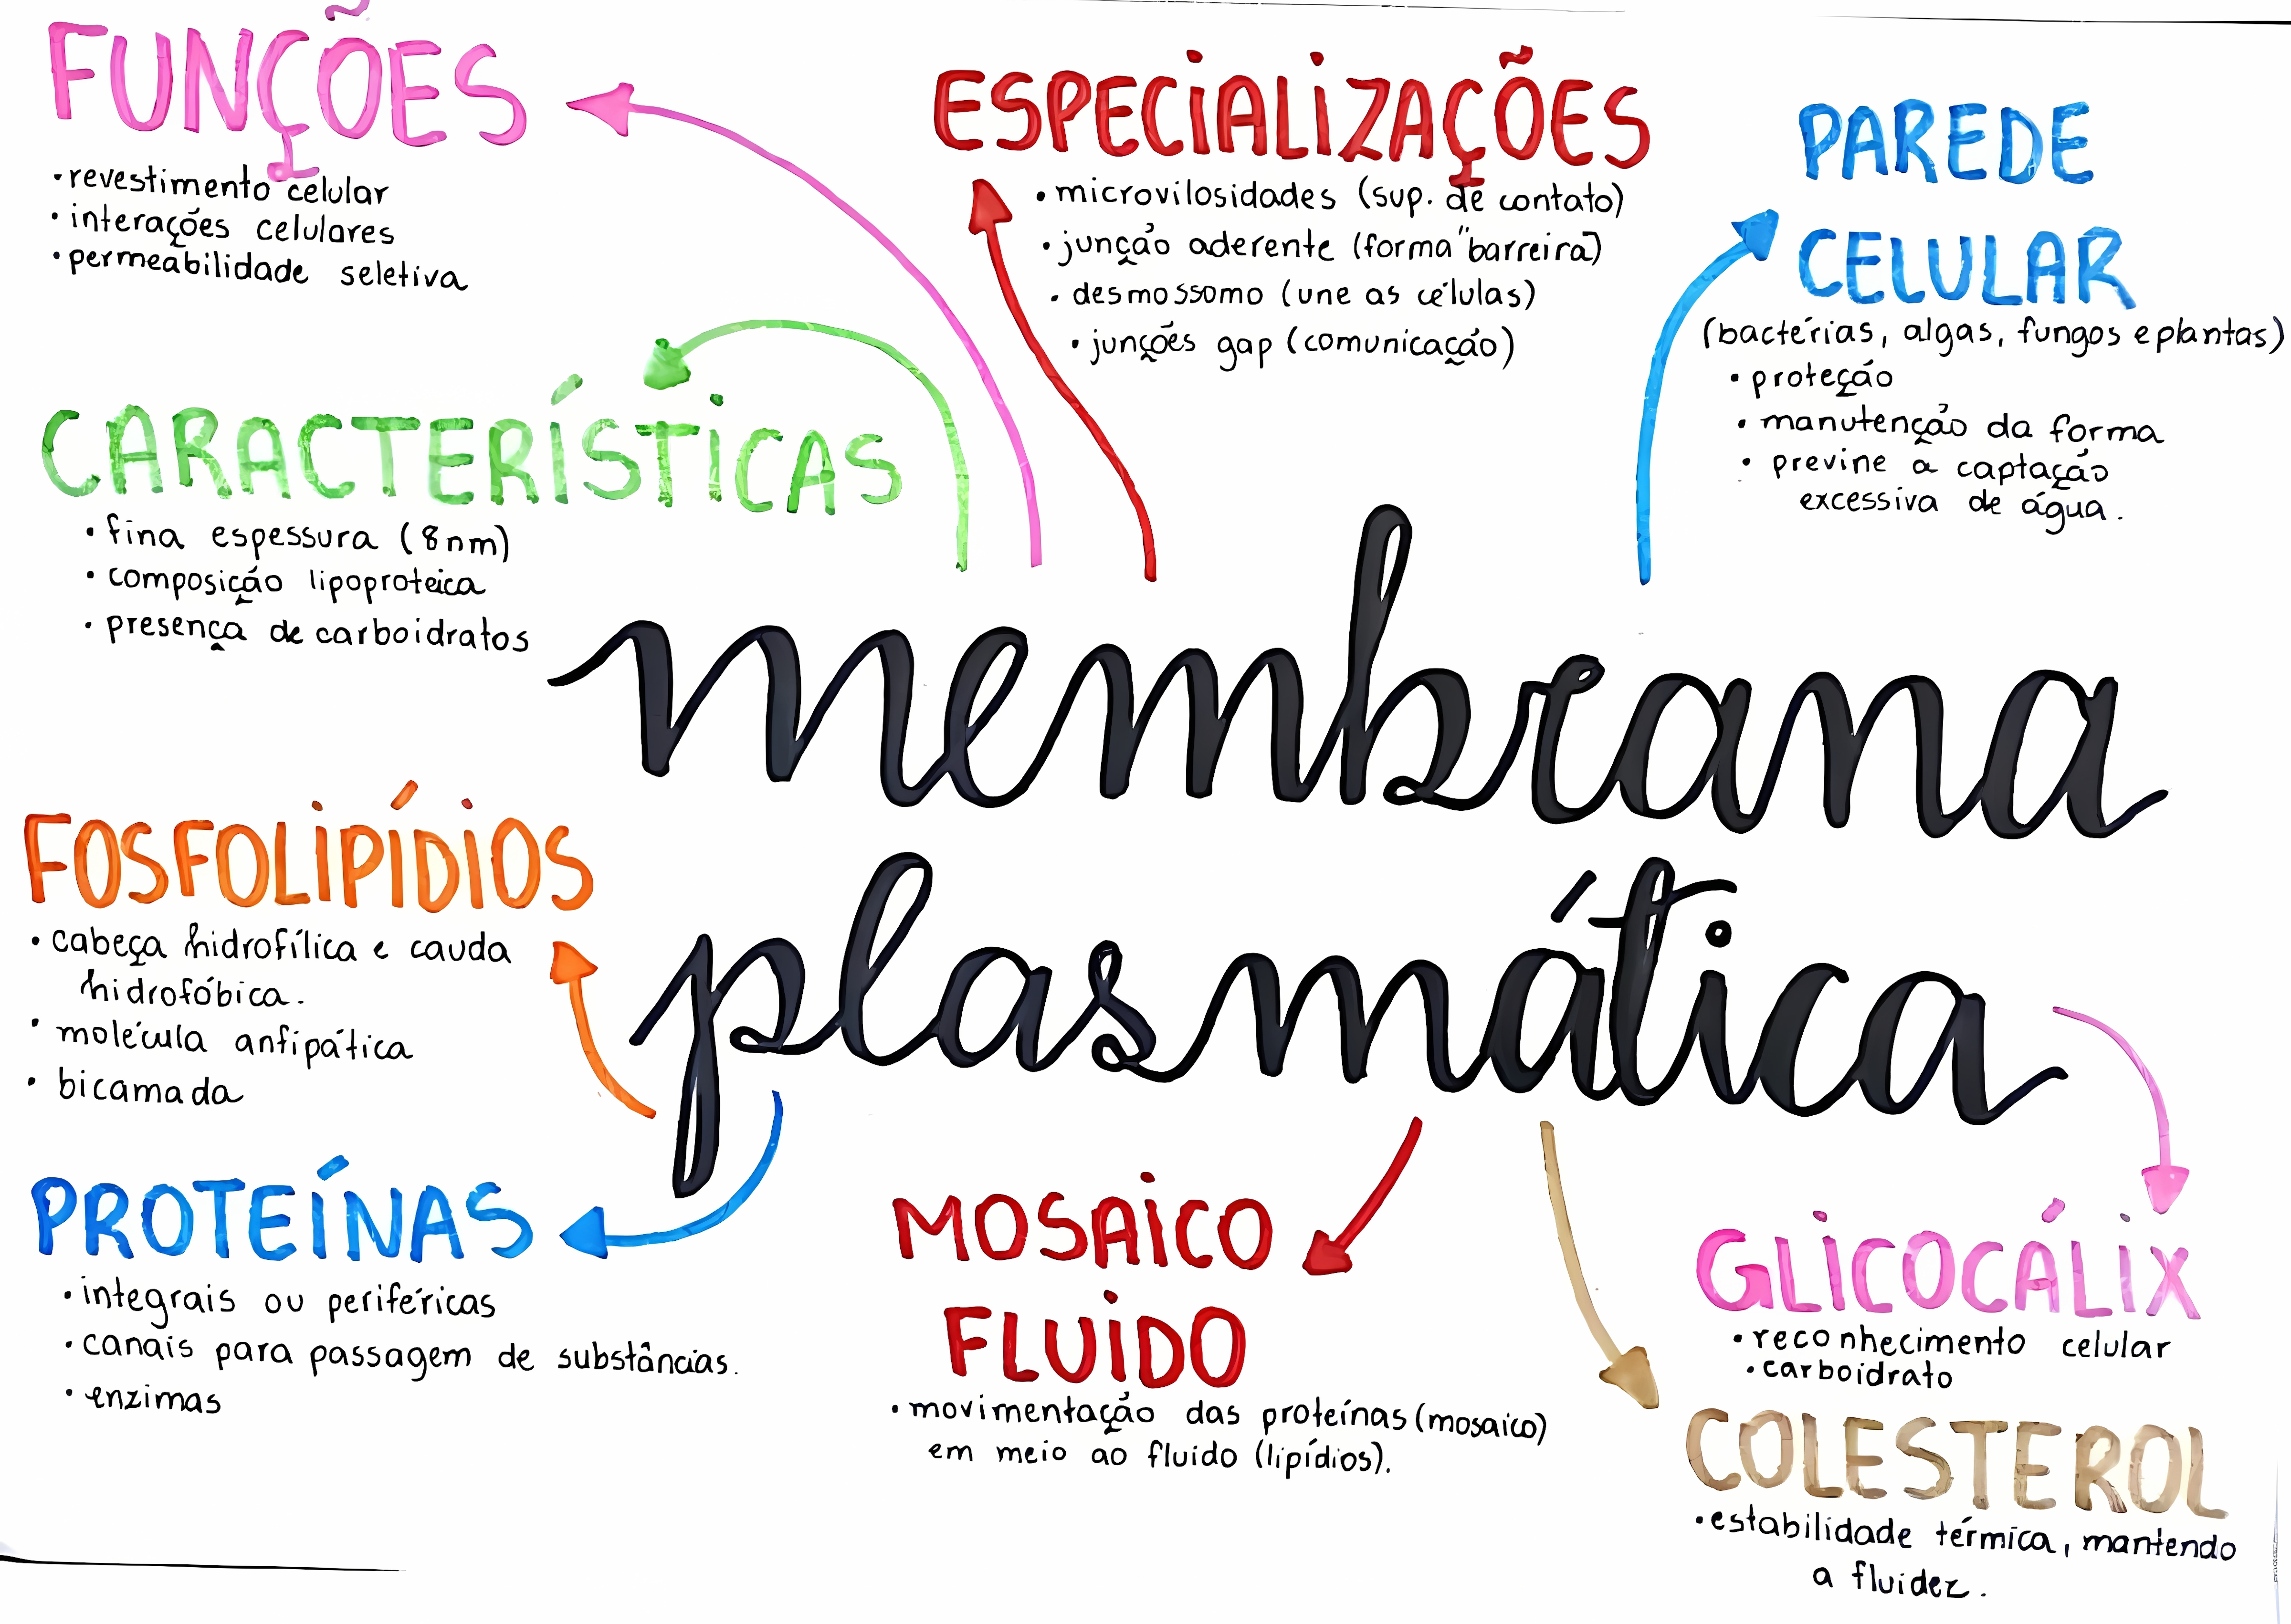 FUNÇÕES
• revestimento celular
• interações celulares
• permeabilidade seletiva
ESPECIALIZAÇÕES
• microvilosidades (sup. de contato)
• junção aderente (forma "barreira")
• desmossomo (une as células)
• junções gap (comunicação)
PAREDE
CELULAR
(bactérias, algas, fungos e plantas)
• proteção
• manutenção da forma
• previne a captação
excessiva de água.
CARACTERÍSTICAS
• fina espessura (8nm)
• composição lipoproteica
• presença de carboidratos
membrana
plasmática
FOSFOLIPÍDIOS
• cabeça hidrofílica e cauda
hidrofóbica.
• molécula anfipática
• bicamada
PROTEÍNAS
• integrais ou periféricas
• canais para passagem de substâncias.
• enzimas
MOSAICO
FLUIDO
• movimentação das proteínas (mosaico)
em meio ao fluído (lipídios).
GLICOCÁLIX
• reconhecimento celular
• carboidrato
COLESTEROL
• estabilidade térmica, mantendo
a fluidez.